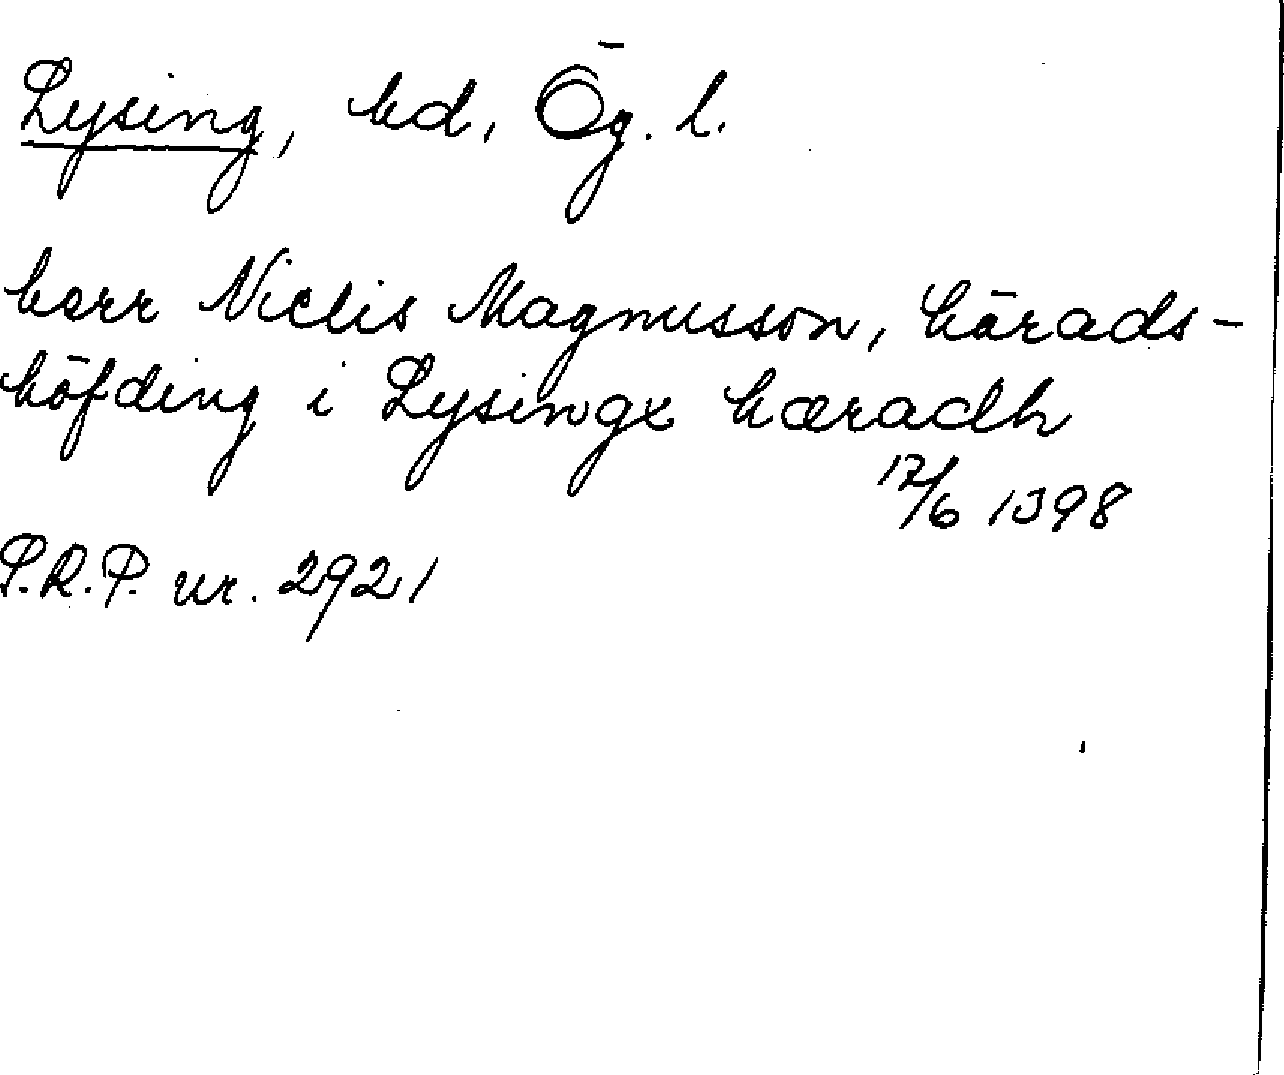 Lysing, hd, Ög. l.
herr Niclis Magnusson, härads-
höfding i Lysingx hæradh
17/6 1398
P.R.P. nr. 2921